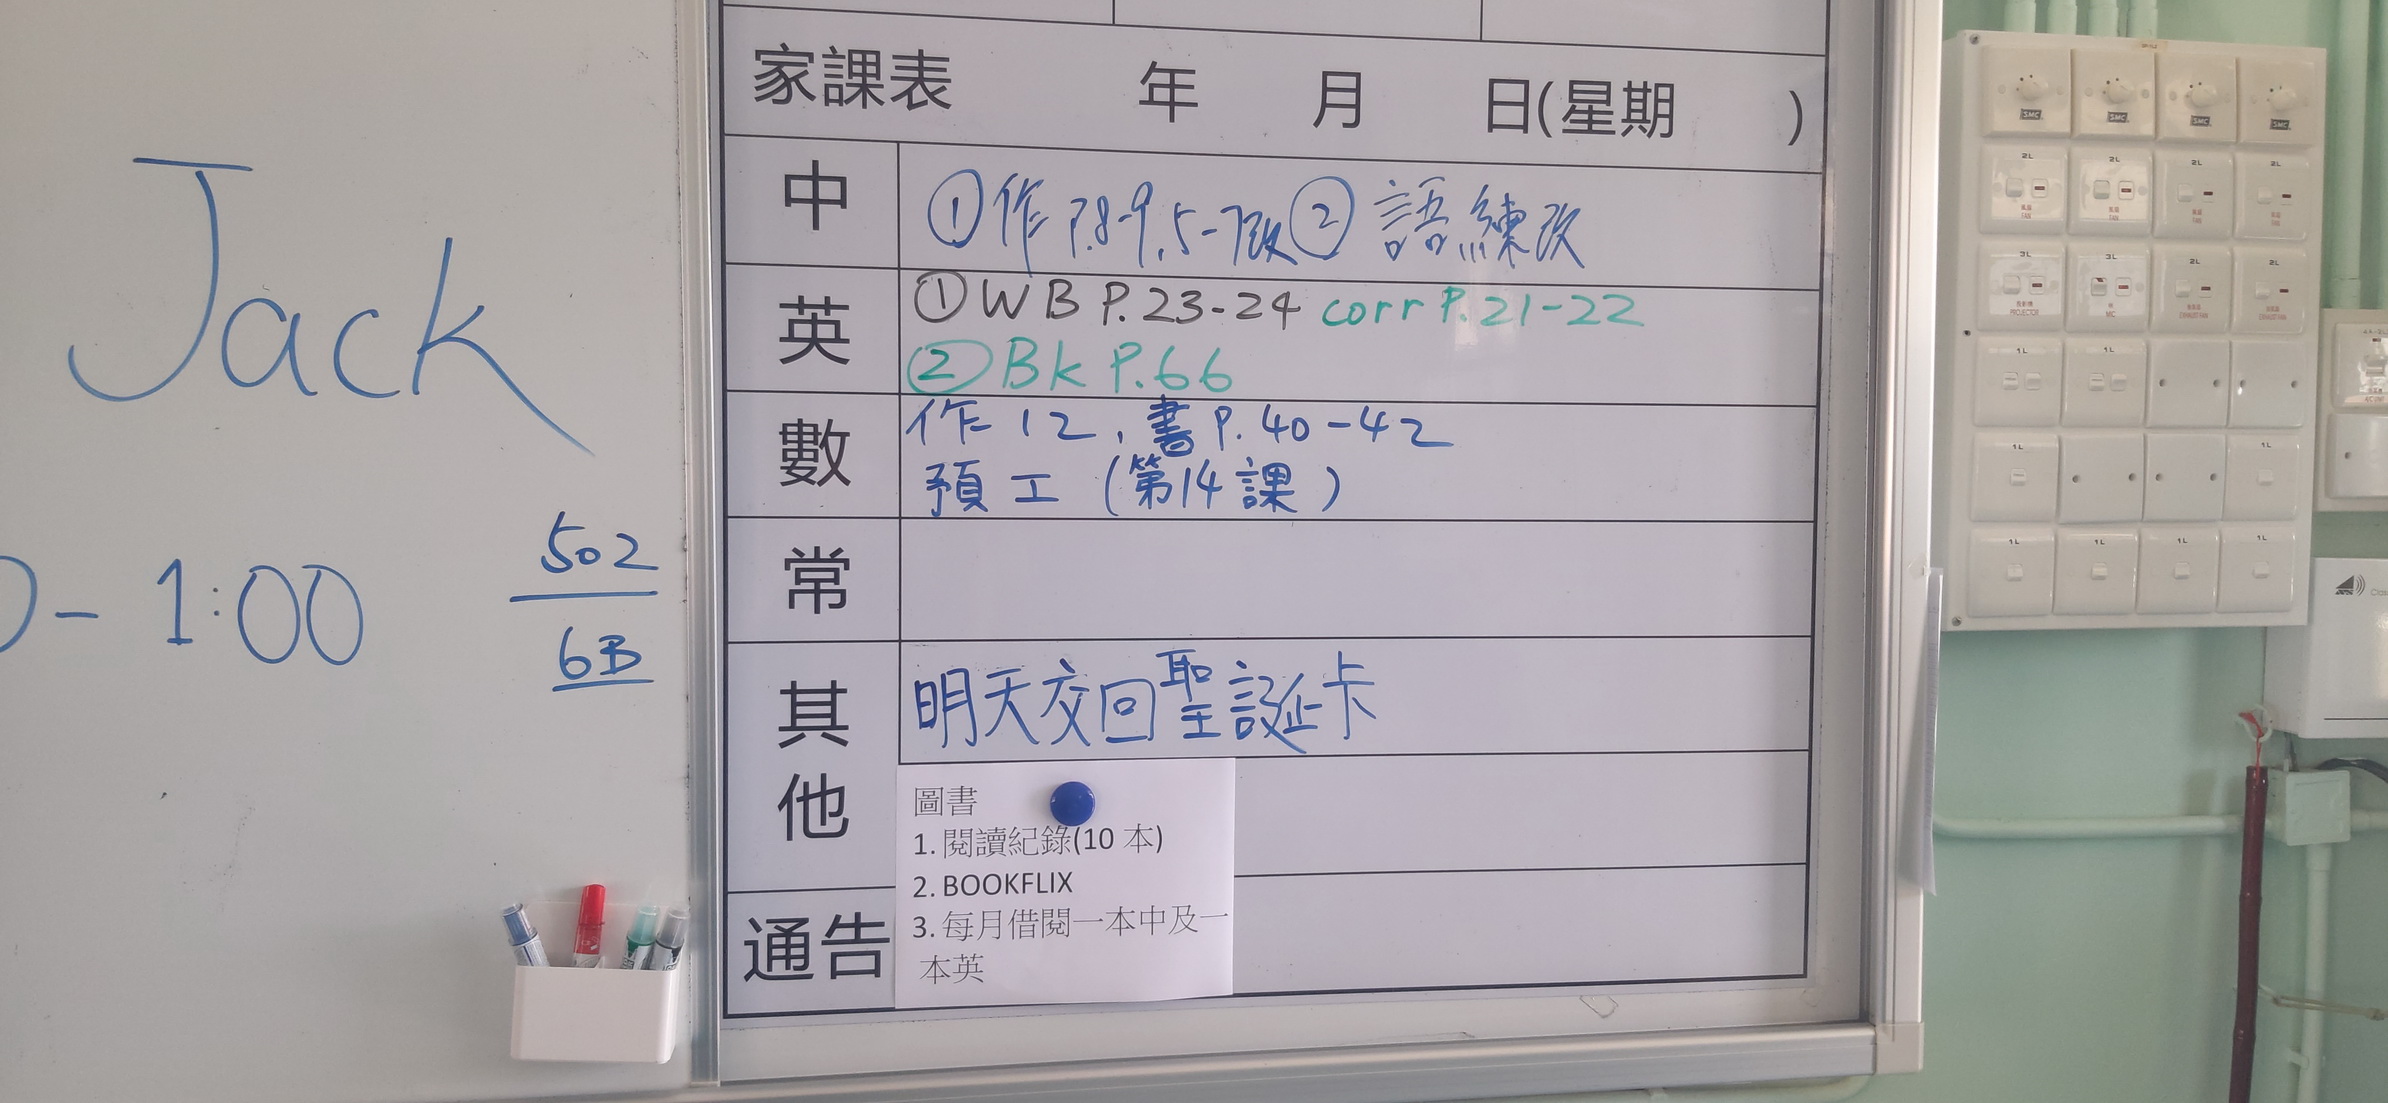 Jack
- 1:00
502
6B
家課表 年 月 日(星期 )
中
①作 P.8-9, 5-7改 ② 語練改
英
① WB P.23-24 corr P.21-22
② Bk P.66
數
作 12, 書 P. 40-42
預工 (第14課)
常
其他
明天交回聖誕卡
圖書
1. 閱讀紀錄(10 本)
2. BOOKFLIX
3. 每月借閱一本中及一
本英
通告
SMC SMC SMC SMC
2L 2L 2L 2L
風扇 風扇 風扇 風扇
FAN FAN FAN FAN
3L 3L 2L 2L
PROJECTOR MIC EXHAUST FAN EXHAUST FAN
1L 1L
1L 1L
1L 1L 1L 1L